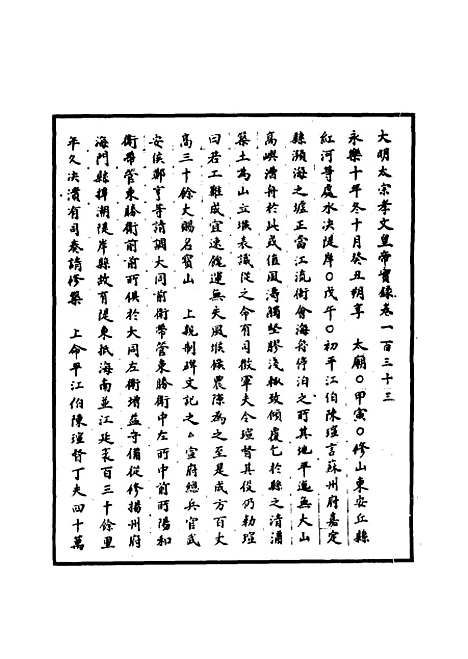 大明太宗孝文皇帝實錄卷一百三十三
永樂十年冬十月癸丑朔享　太廟○甲寅○修山東安丘縣
紅河等處水決隄岸○戊午○初平江伯陳瑄言蘇州府嘉定
縣瀕海之墟正當江流衝會海舟停泊之所其地平迤無大山
高嶼潛舟於此或值風濤觸堅膠淺輒致傾覆乞於縣之清浦
築土為山立堠表識從之命有司徵軍夫令瑄督其役仍勑瑄
曰若工難成宜速餽運無失風堠候農隙為之至是成方百丈
高三十餘丈賜名寶山　上親制碑文記之○宣府總兵官武
安侯鄭亨等請調大同前衛帶管東勝衛中左所中前所陽和
衛帶管東勝衛前前所俱於大同左衛增益守備從修揚州府
海門縣捍潮隄岸縣故有隄東抵海南並江延袤百三十餘里
年久決潰有司奏請修築　上命平江伯陳瑄督丁夫四十萬